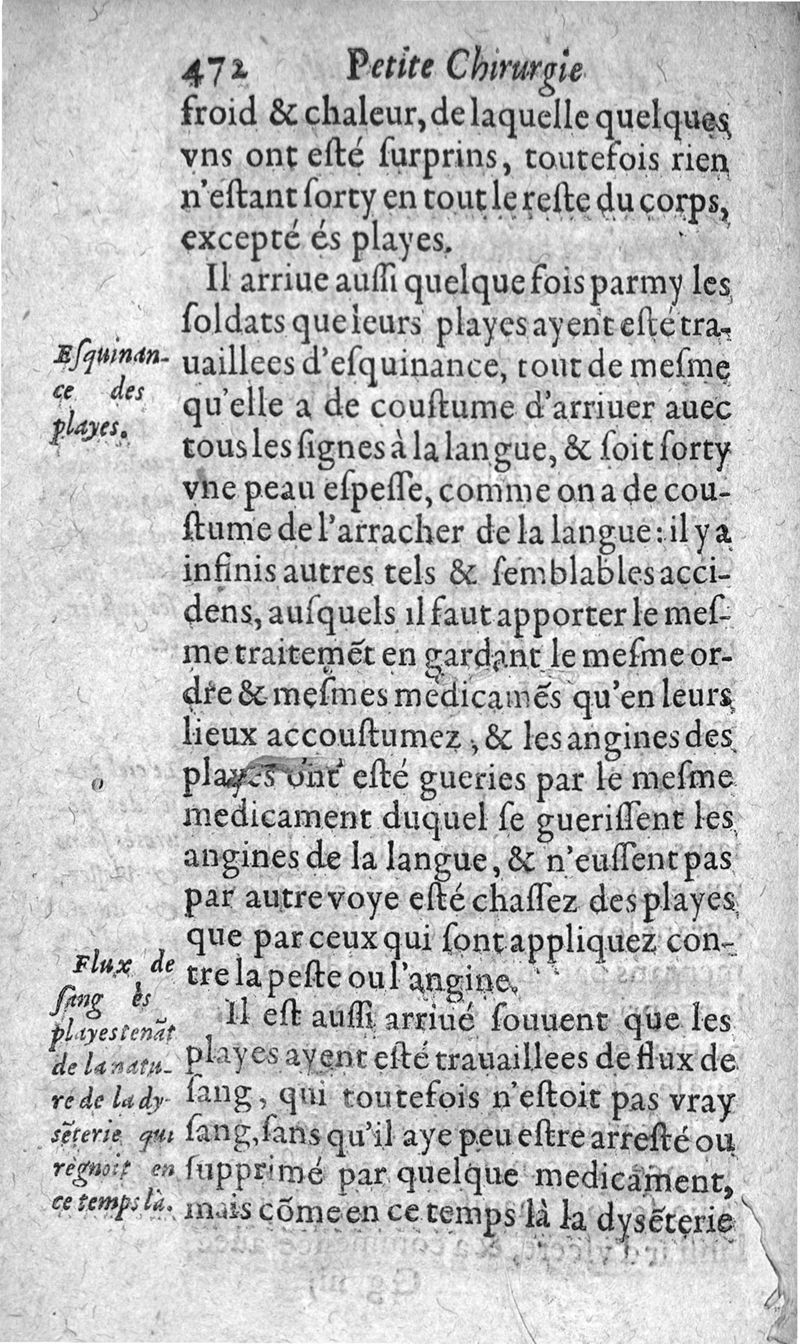 472 Petite Chirurgie
froid & chaleur, de laquelle quelques
vns ont eſté ſurprins, toutefois rien
n'eſtant ſorty en tout le reſte du corps,
excepté és playes.
Il arriue auſſi quelque fois parmy les
ſoldats que leurs playes ayent eſté tra-
uaillees d'eſquinance, tout de meſme
qu'elle a de couſtume d'arriuer auec
tous les ſignes à la langue, & ſoit ſorty
vne peau eſpeſſe, comme on a de cou-
ſtume de l'arracher de la langue: il y a
infinis autres tels & ſemblables acci-
dens, auſquels il faut apporter le meſ-
me traitemẽt en gardant le meſme or-
dre & meſmes medicamẽs qu'en leurs
lieux accouſtumez, & les angines des
playes ont eſté gueries par le meſme
medicament duquel ſe gueriſſent les
angines de la langue, & n'euſſent pas
par autre voye eſté chaſſez des playes,
que par ceux qui ſont appliquez con-
tre la peſte ou l'angine.
Il eſt auſſi arriué ſouuent que les
playes ayent eſté trauaillees de flux de
ſang, qui toutefois n'eſtoit pas vray
ſang, ſans qu'il aye peu eſtre arreſté ou
ſupprimé par quelque medicament,
mais cõme en ce temps là la dyſẽterie
Eſquinan-
ce des
playes.
Flux de
ſang ès
playes tenãt
de la natu-
re de la dy-
ſẽterie qui
regnoit en
ce temps là.